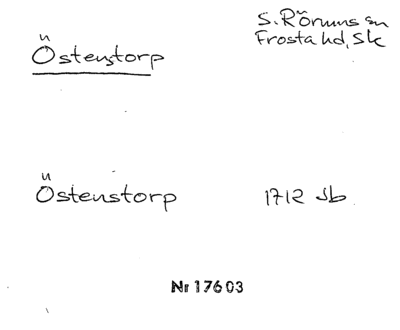 Östenstorp
S. Rörums sn
Frosta hd, Sk
Östenstorp
1712 Jb
Nr 17603